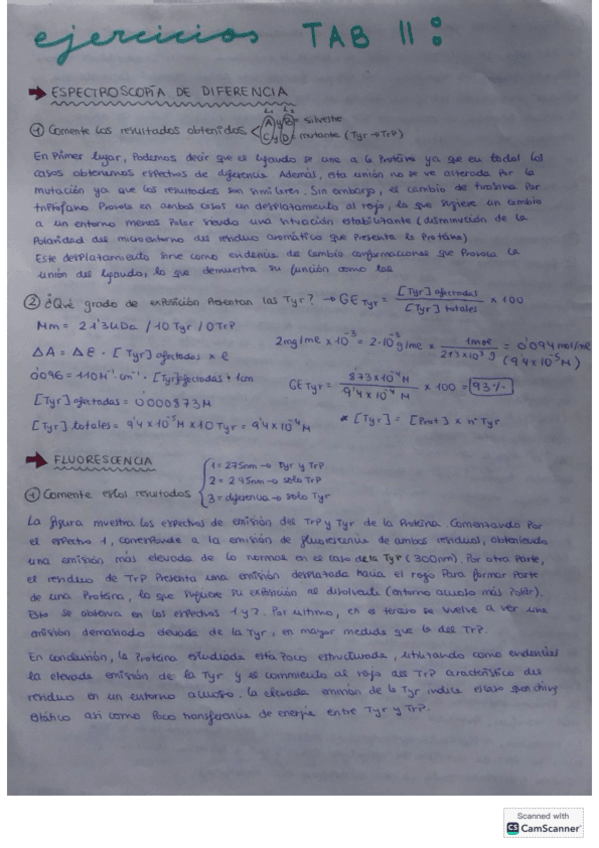 ejercicios TAB II:
→ ESPECTROSCOPÍA DE DIFERENCIA
① Comente los resultados obtenidos < L₁ L₂ A y B = silvestre
C y D = mutante (Tyr → TrP)
En Primer lugar, Podemos decir que el ligando se une a la Proteína ya que en todos los
casos obtenemos espectros de diferencia. Además, esta unión no se ve alterada por la
mutación ya que los resultados son similares. Sin embargo, el cambio de tirosina Por
triptófano Provoca en ambos casos un desplazamiento al rojo, lo que sugiere un cambio
a un entorno menos Polar siendo una situación estabilitante (disminución de la
Polaridad del microentorno del residuo aromático que Presenta la Proteína)
Este desplazamiento sirve como evidencia de cambio conformacional que Provoca la
unión del ligando, lo que demuestra su función como tal
② ¿Qué grado de exposición Presentan las Tyr? → GE Tyr = [Tyr] afectadas / [Tyr] totales × 100
Mm = 21'3 kDa / 10 Tyr / 0 TrP
2mg/mL × 10⁻³ = 2·10⁻³ g/mL × 1 mol / 21'3×10³ g = 0'094 mol/mL
(9'4×10⁻⁵ M)
ΔA = ΔE · [Tyr] afectadas × l
0'096 = 110 M⁻¹·cm⁻¹ · [Tyr] afectadas · 1cm
GE Tyr = 8'73×10⁻⁴ M / 9'4×10⁻⁴ M × 100 = 93%
[Tyr] afectadas = 0'000873 M
[Tyr] totales = 9'4×10⁻⁵ M × 10 Tyr = 9'4×10⁻⁴ M
* [Tyr] = [Prot] × nº Tyr
→ FLUORESCENCIA
① Comente estos resultados { 1 = 275nm → Tyr y TrP
2 = 295nm → solo TrP
3 = diferencia → solo Tyr
La figura muestra los espectros de emisión del TrP y Tyr de la Proteína. Comenzando Por
el espectro 1, corresponde a la emisión de fluorescencia de ambos residuos, obteniendo
una emisión más elevada de lo normal en el caso de la Tyr (300nm). Por otra Parte,
el residuo de TrP Presenta una emisión desplazada hacia el rojo Para formar Parte
de una Proteína, lo que sugiere su exposición al disolvente (entorno acuoso más Polar).
Esto se observa en los espectros 1 y 2. Por ultimo, en el tercero se vuelve a ver una
emisión demasiado elevada de la Tyr, en mayor medida que la del TrP.
En conclusión, la Proteína estudiada está Poco estructurada, utilizando como evidencias
la elevada emisión de la Tyr y el corrimiento al rojo del TrP característico del
residuo en un entorno acuoso. La elevada emisión de la Tyr indica escaso quenching
estático así como Poca transferencia de energía entre Tyr y TrP.
Scanned with
CS CamScanner